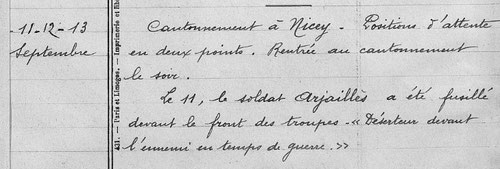 -11-12-13
Septembre
Cantonnement à Nicey - Positions d'attente
en deux points. Rentrée au cantonnement
le soir.
Le 11, le soldat Arjaillès a été fusillé
devant le front des troupes - « Déserteur devant
l'ennemi en temps de guerre. »
431. — Paris et Limoges. — Imprimerie et